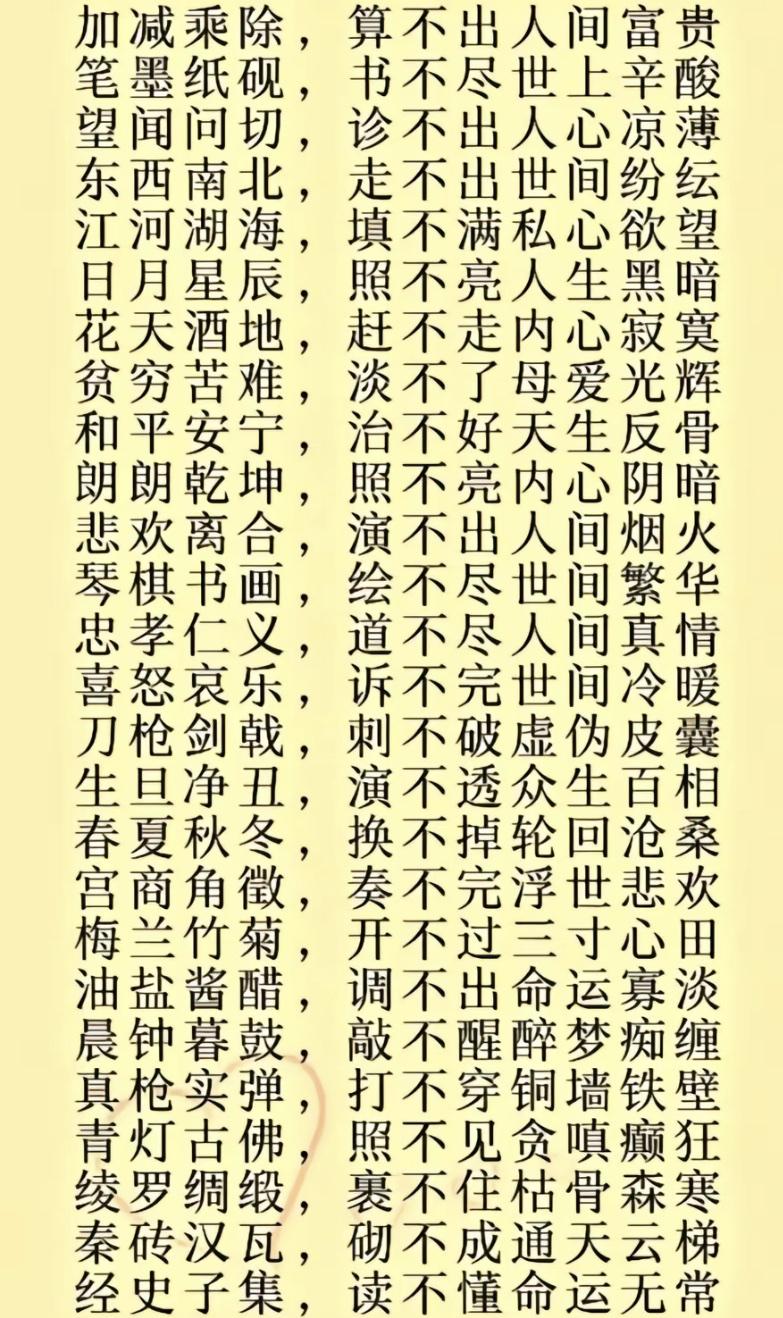 加减乘除，算不出人间富贵
笔墨纸砚，书不尽世上辛酸
望闻问切，诊不出人心凉薄
东西南北，走不出世间纷纭
江河湖海，填不满私心欲望
日月星辰，照不亮人生黑暗
花天酒地，赶不走内心寂寞
贫穷苦难，淡不了母爱光辉
和平安宁，治不好天生反骨
朗朗乾坤，照不亮内心阴暗
悲欢离合，演不出人间烟火
琴棋书画，绘不尽世间繁华
忠孝仁义，道不尽人间真情
喜怒哀乐，诉不完世间冷暖
刀枪剑戟，刺不破虚伪皮囊
生旦净丑，演不透众生百相
春夏秋冬，换不掉轮回沧桑
宫商角徵，奏不完浮世悲欢
梅兰竹菊，开不过三寸心田
油盐酱醋，调不出命运寡淡
晨钟暮鼓，敲不醒醉梦痴缠
真枪实弹，打不穿铜墙铁壁
青灯古佛，照不见贪嗔癫狂
绫罗绸缎，裹不住枯骨森寒
秦砖汉瓦，砌不成通天云梯
经史子集，读不懂命运无常